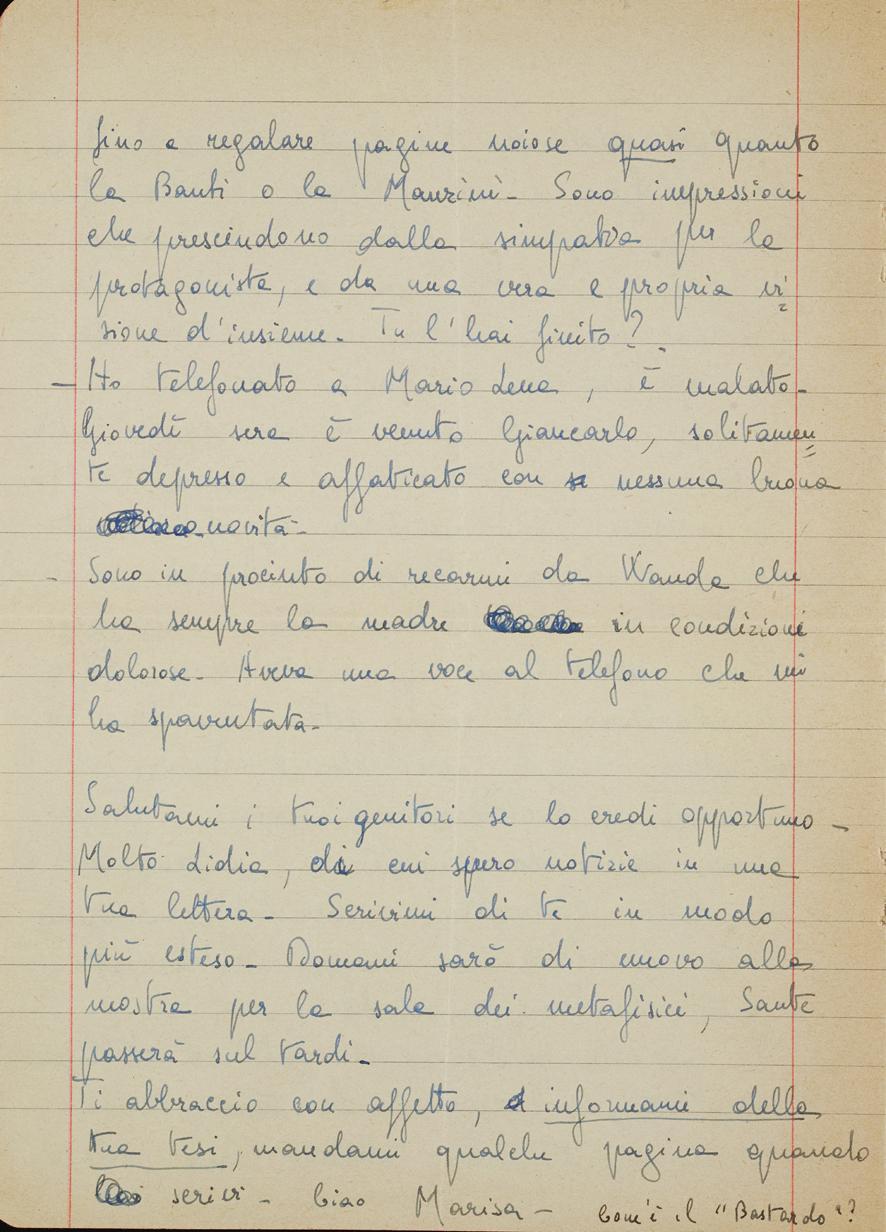 fino a regalare pagine noiose quasi quanto
la Banti o la Manzini - Sono impressioni
che prescindono dalla simpatia per la
protagonista, e da una vera e propria vi=
sione d'insieme - Tu l'hai finito?
- Ho telefonato a Mario Lena, è malato -
Giovedì sera è venuto Giancarlo, solitamen=
te depresso e affaticato con nessuna buona
novità -
- Sono in procinto di recarmi da Wanda che
ha sempre la madre in condizioni
dolorose - Aveva una voce al telefono che mi
ha spaventata -
Salutami i tuoi genitori se lo credi opportuno -
Molto Lidia, di cui spero notizie in una
tua lettera - Scrivimi di te in modo
più esteso - Domani sarò di nuovo alla
mostra per la sala dei metafisici, Sante
passerà sul tardi -
Ti abbraccio con affetto, informami della
tua tesi, mandami qualche pagina quando
scrivi - Ciao Marisa - Com'è il "Bastardo"?